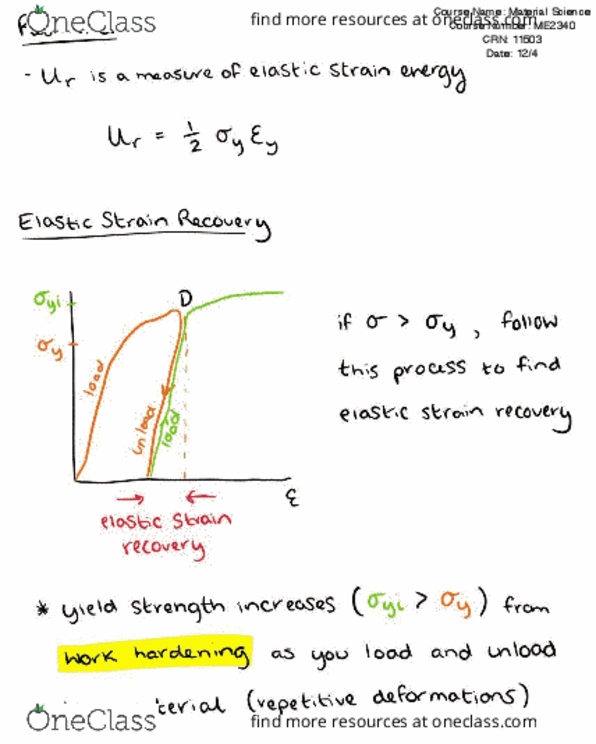 OneClass
find more resources at oneclass.com
Course Name: Material Science
Course Number: ME2340
CRN: 11503
Date: 12/4
- Ur is a measure of elastic strain energy
Ur = 1/2 σy Ey
Elastic Strain Recovery
σyi
D
σy
load
unload
load
ε
elastic strain
recovery
if σ > σy , follow
this process to find
elastic strain recovery
* yield strength increases (σyi > σy) from
work hardening as you load and unload
(repetitive deformations)
OneClass
find more resources at oneclass.com